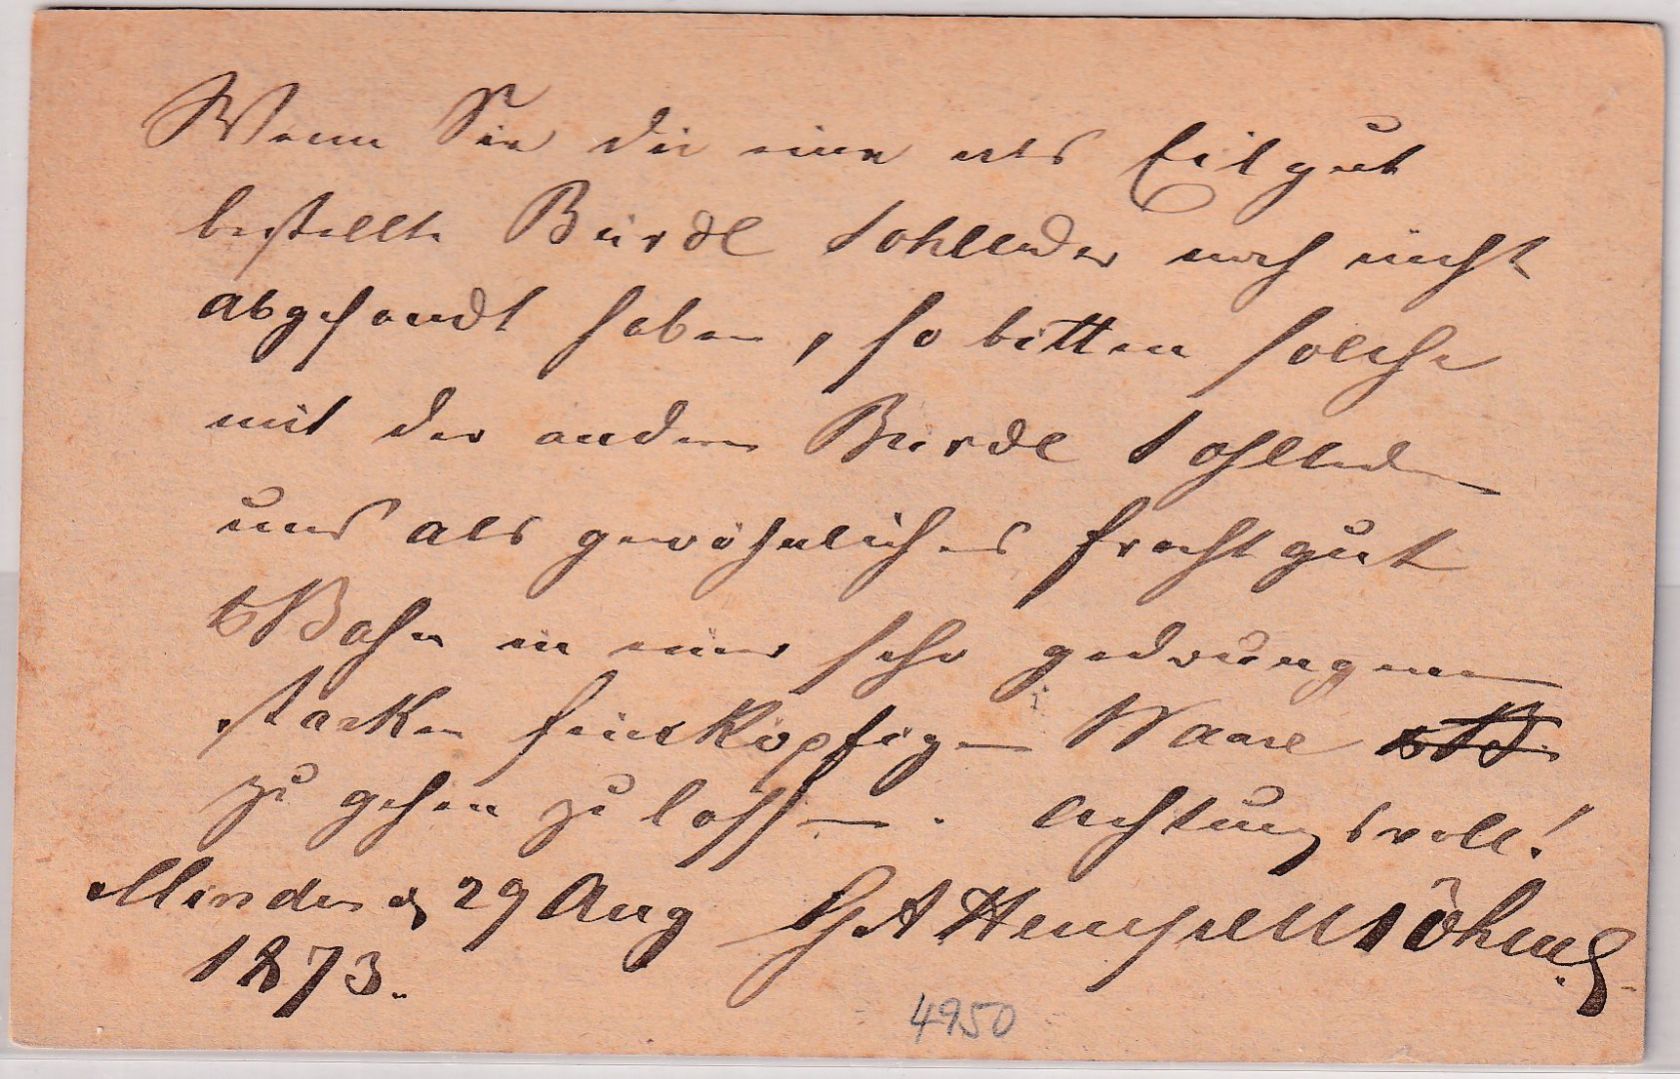 Wenn Sie die eine als Eilgut
bestellte Bürde Sohlleder noch nicht
abgesandt haben, so bitten solche
mit der andern Bürde Sohlleder
uns als gewöhnliches Frachtgut
Bahn in einer sehr gedrungenen
starken feinköpfigen Waare
zu gehen zu lassen. Achtungsvoll!
Minden d 29 Aug
1873.
4950